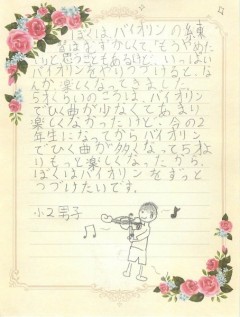 ぼくはバイオリンの練
習はむずかしくて、「もうやめた
い」と思うこともあるけど、いっぱい
バイオリンをやりつづけると、な
んか楽しくなってきました。
5才くらいのころは、バイオリン
でひく曲が少なくてあまり
楽しくなかったけど、今の2
年生になってからバイオリン
でひく曲が多くなって5才よ
りもっと楽しくなったから、
ぼくはバイオリンをずっと
つづけたいです。
小2男子